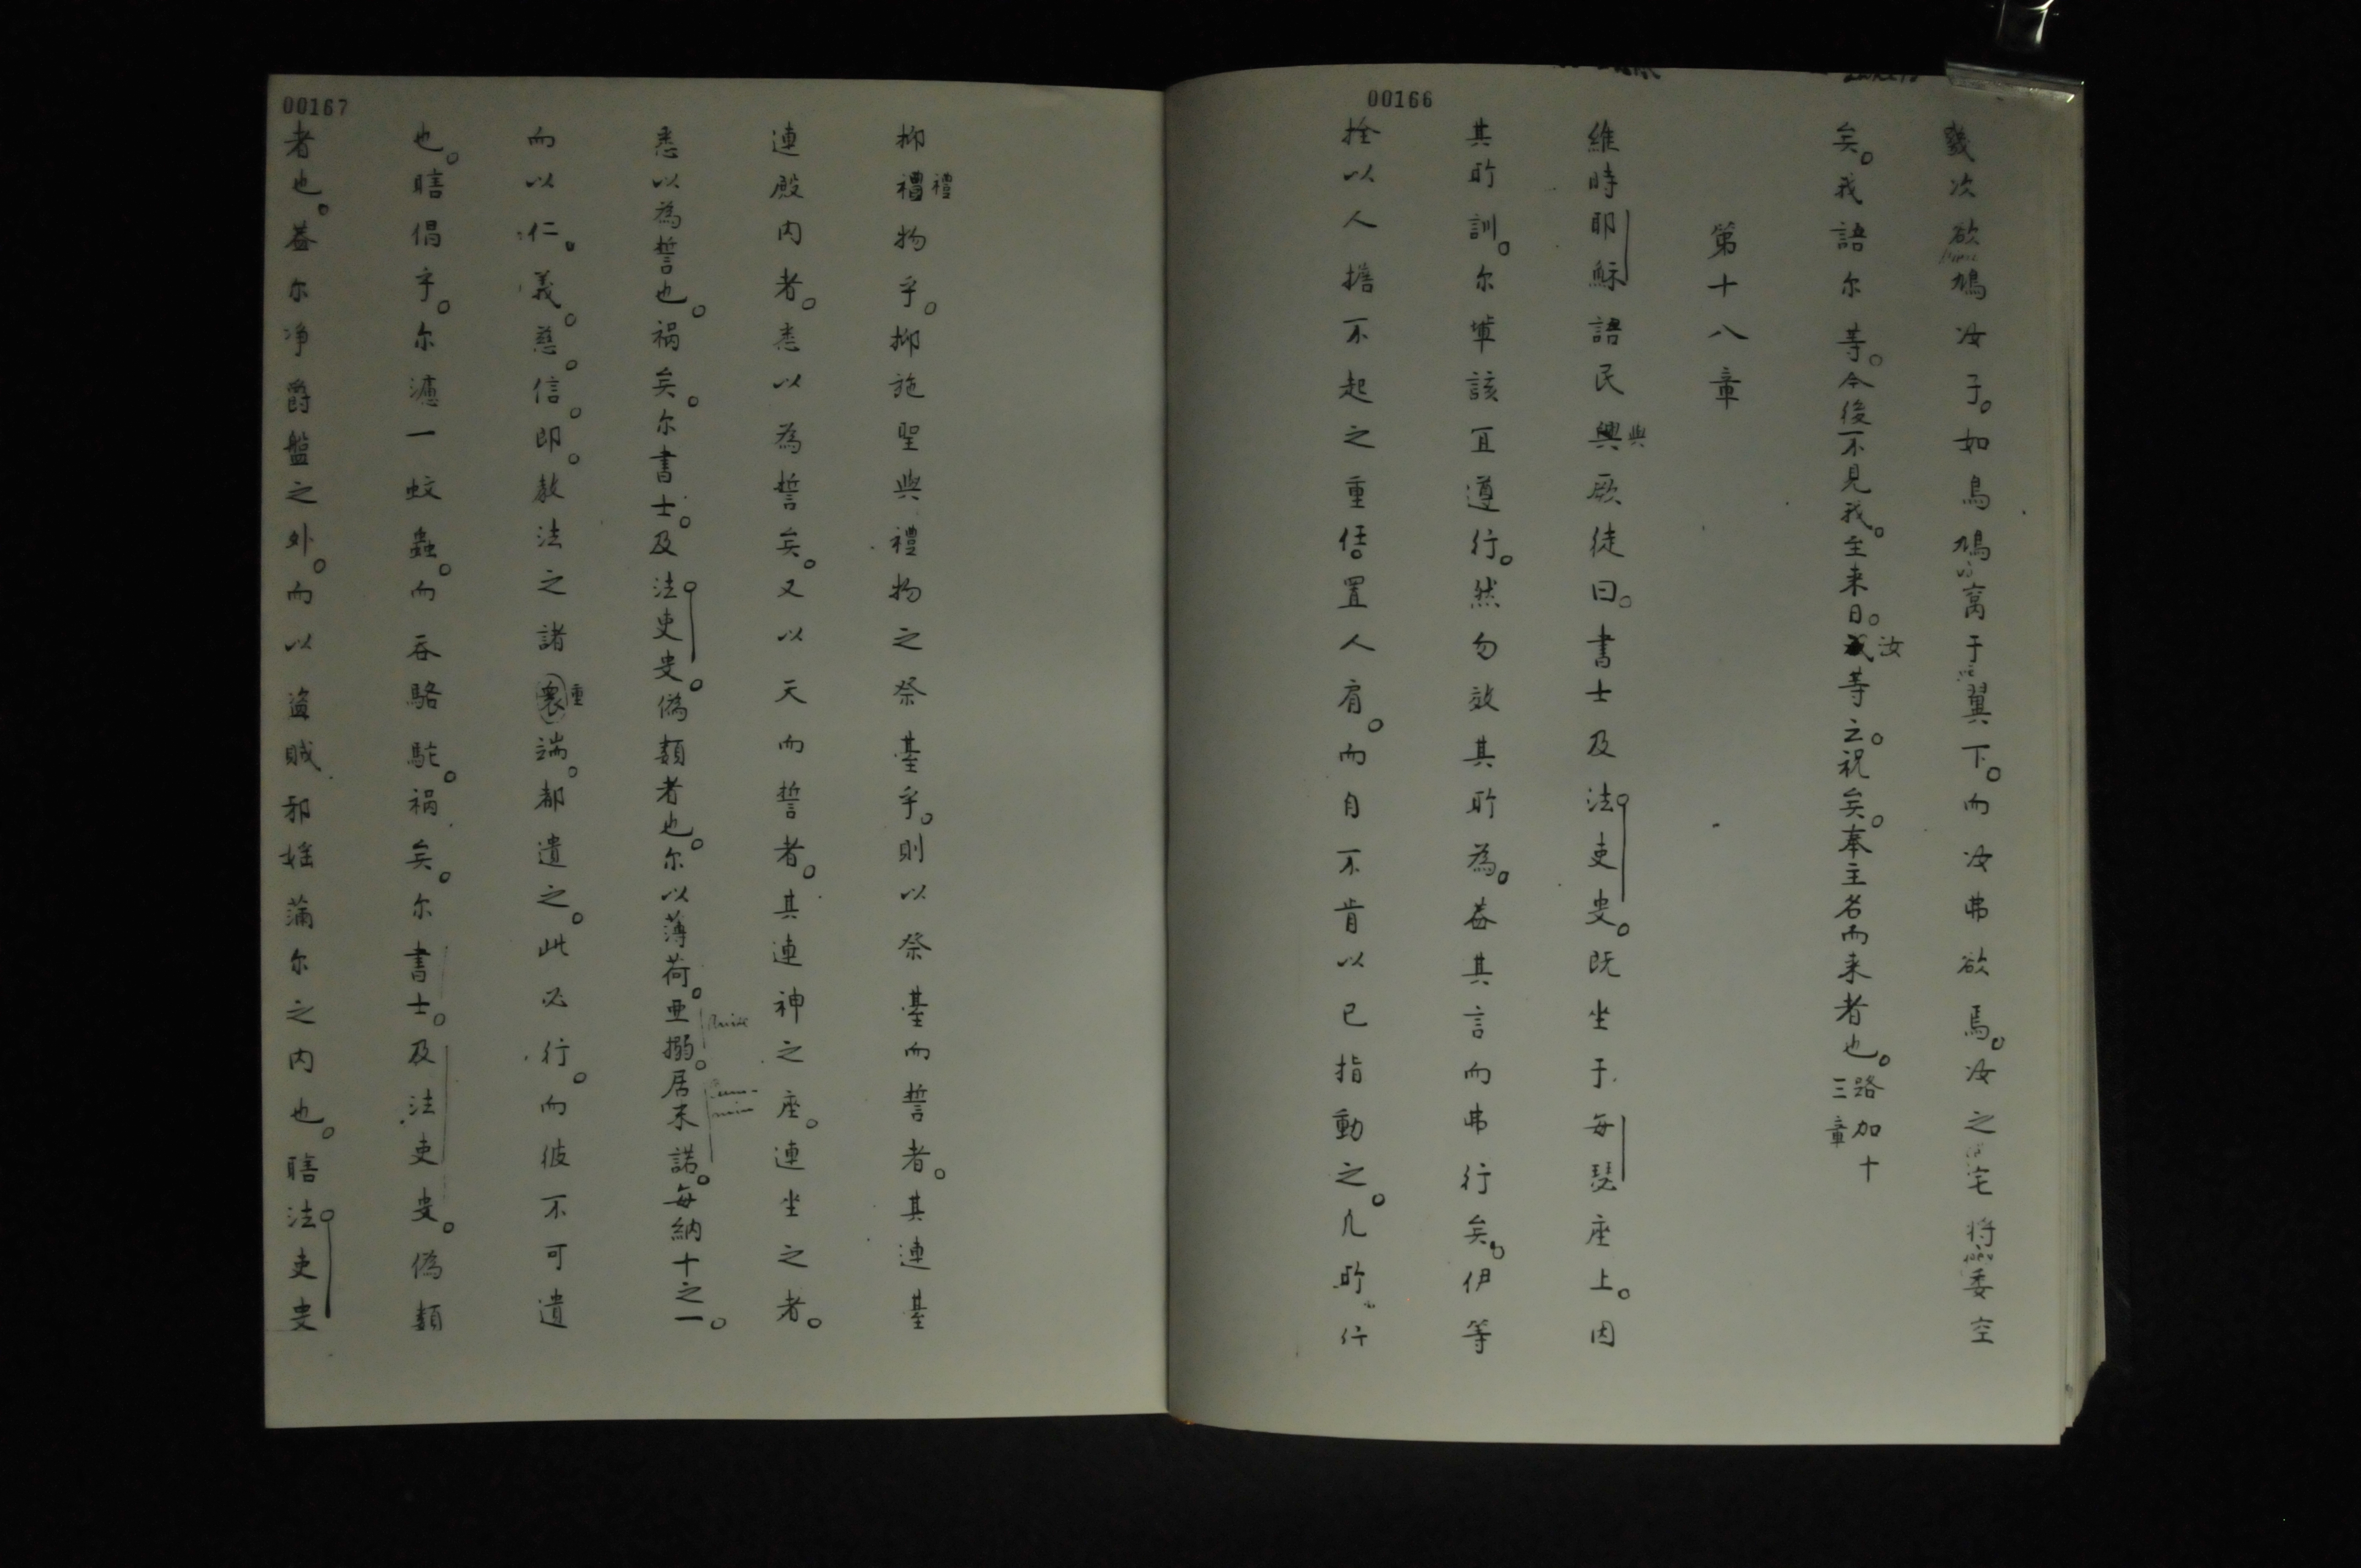 00166
幾次欲鳩汝子。如鳥鳩窩于翼下。而汝弗欲焉。汝之宅將委空
矣。我語尔等。今後不見我。至来日。汝等之。祝矣。奉主名而来者也。路加十三章
第十八章
維時耶穌語民與厥徒曰。書士及法吏叟。既坐于每瑟座上。因
其所訓。尔輩該宜遵行。然勿效其所為。蓋其言而弗行矣。伊等
拴以人擔不起之重任。置人肩。而自不肯以己指動之。凡所行
00167
抑禮物乎。抑施聖與禮物之祭臺乎。則以祭臺而誓者。其連臺
連殿内者。悉以為誓矣。又以天而誓者。其連神之座。連坐之者。
悉以為誓也。禍矣。尔書士。及法吏叟。偽類者也。尔以薄荷。亜搦。居末諾。每納十之一。
而以仁。義。慈。信。即。教法之諸重端。都遺之。此必行。而彼不可遺
也。瞎倡乎。尔漉一蚊蟲。而吞駱駝。禍矣。尔書士。及法吏叟。偽類
者也。蓋尔净爵盤之外。而以盗贼邪婬蒲尔之内也。瞎法吏叟